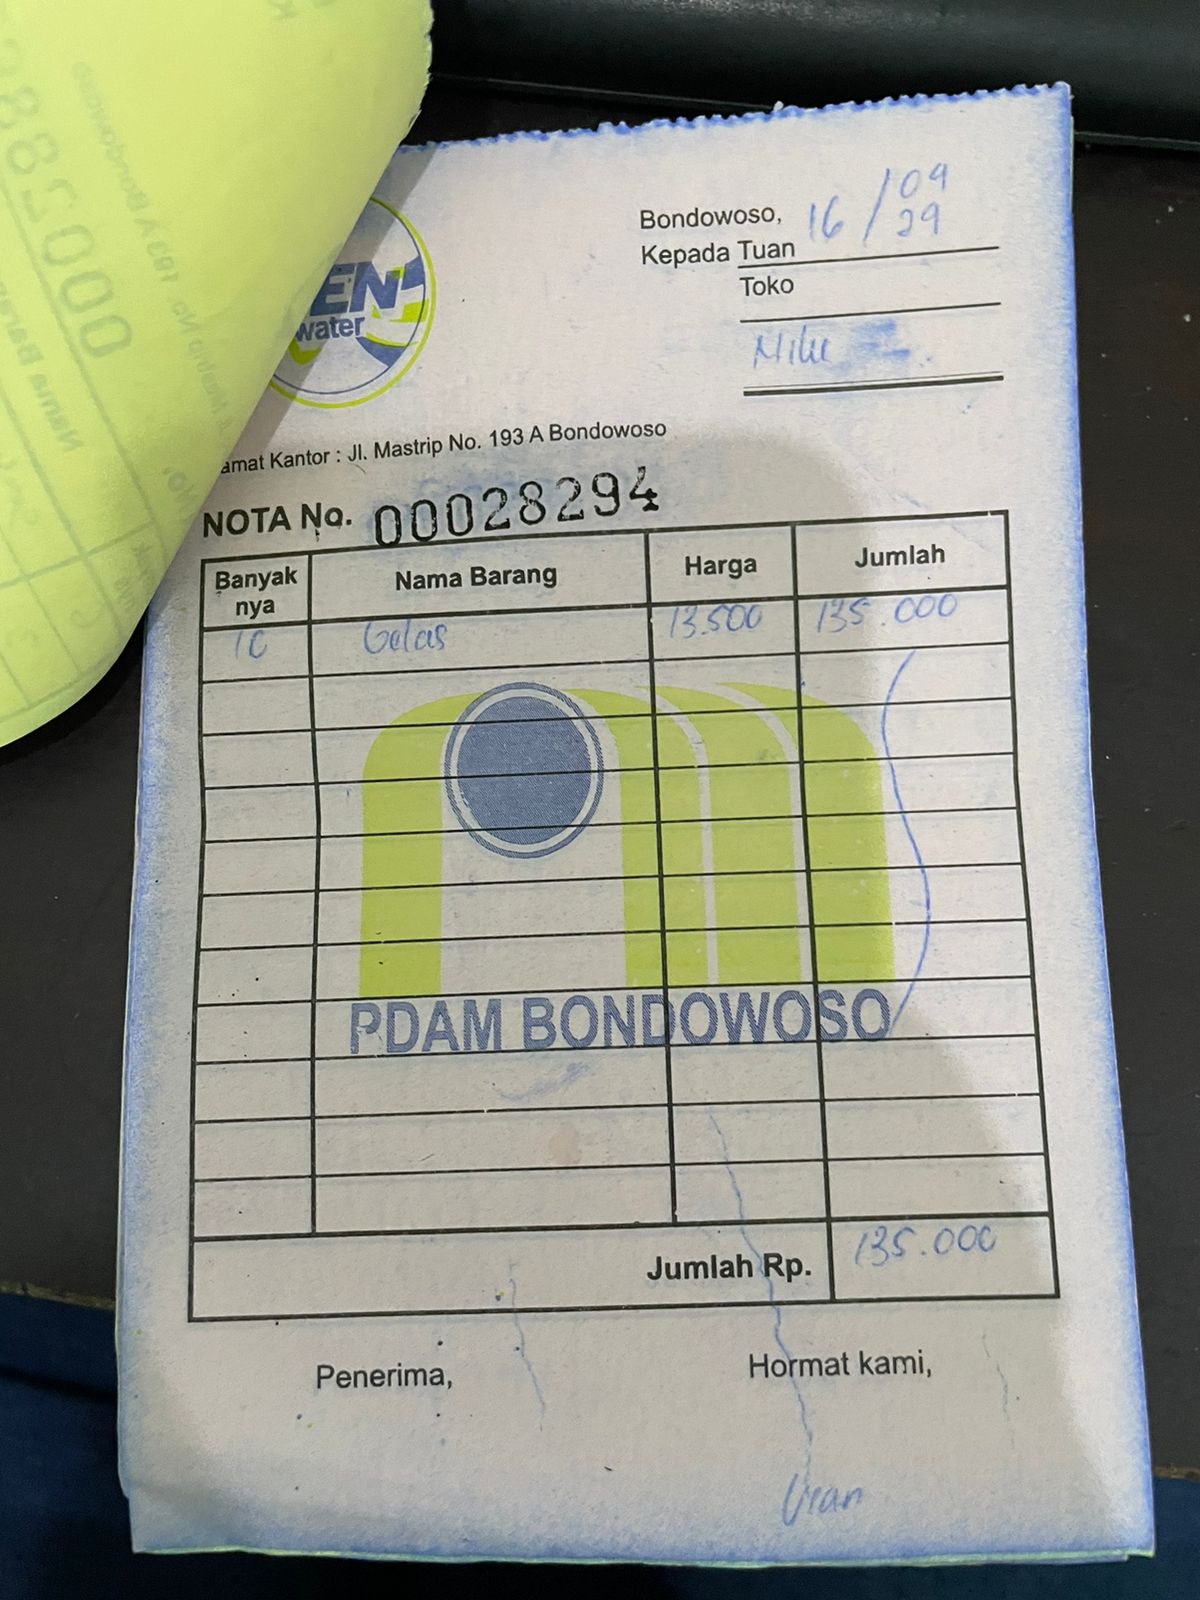 EN
water
Bondowoso, 16/09
29
Kepada Tuan
Toko
amat Kantor : Jl. Mastrip No. 193 A Bondowoso
NOTA No. 00028294
Banyak nya Nama Barang Harga Jumlah
10 Gelas 13.500 135.000
PDAM BONDOWOSO
Jumlah Rp. 135.000
Penerima, Hormat kami,